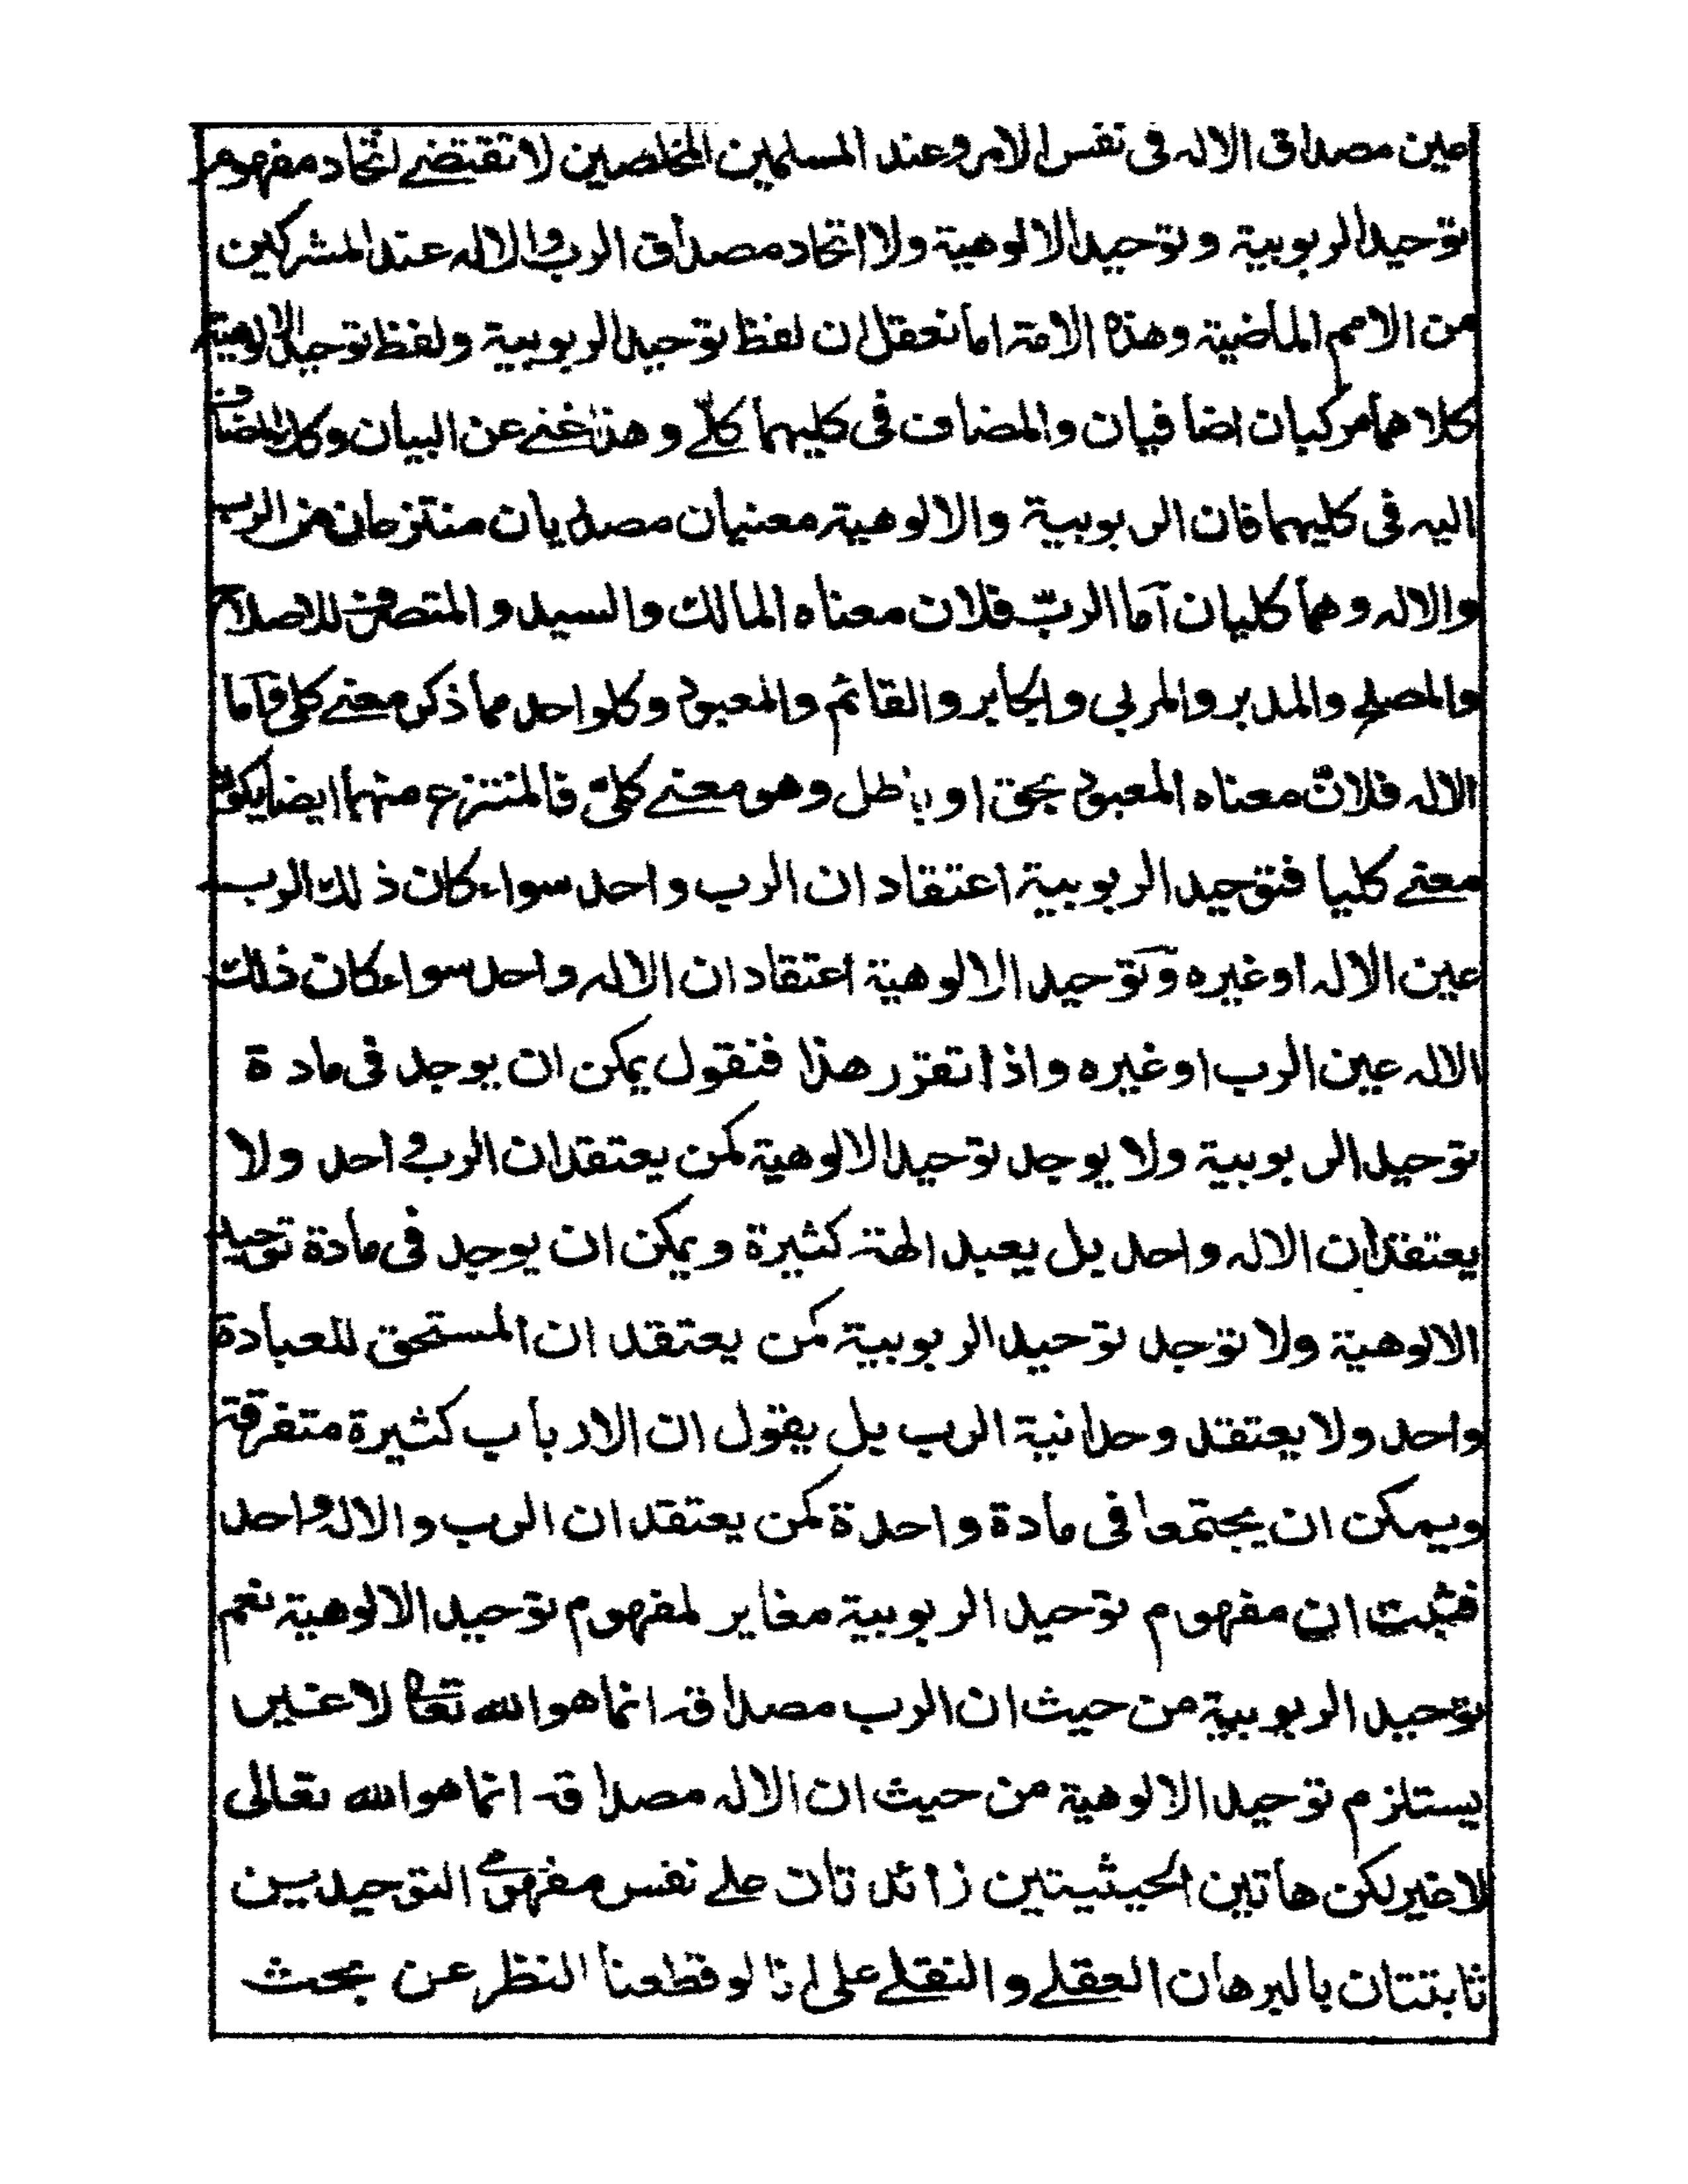 عين مصداق الاله فى نفس الامر وعند المسلمين المخلصين لا تقتضے اتحاد مفهوم
توحيد الربوبية وتوحيد الالوهية ولا اتحاد مصداق الرب والاله عند المشركين
من الامم الماضية وهذه الامة اما نعقل ان لفظ توحيد الربوبية ولفظ توحيد الالوهية
كلاهما مركبان اضافيان والمضاف فى كليهما كلّے وهذا غنے عن البيان وكذا المضاف
اليه فى كليهما فان الربوبية والالوهية معنيان مصدريان منتزعان من الرب
والاله وهما كليان آما الربّ فلان معناه المالك والسيد والمتصرف للاصلاح
والمصلح والمدبر والمربى والجابر والقائم والمعبود وكل واحد مما ذكر معنے كلى وآما
الاله فلانّ معناه المعبود بحق او باطل وهو معنے كلىّ فالمنتزع منهما ايضا يكون
معنے كليا فتوحيد الربوبية اعتقاد ان الرب واحد سواء كان ذلك الرب
عين الاله او غيره وتوحيد الالوهية اعتقاد ان الاله واحد سواء كان ذلك
الاله عين الرب او غيره واذا تقرر هذا فنقول يمكن ان يوجد فى مادة
توحيد الربوبية ولا يوجد توحيد الالوهية كمن يعتقد ان الرب واحد ولا
يعتقد ان الاله واحد بل يعبد الهة كثيرة ويمكن ان يوجد فى مادة توحيد
الالوهية ولا توجد توحيد الربوبية كمن يعتقد ان المستحق للعبادة
واحد ولا يعتقد وحدانية الرب بل يقول ان الارباب كثيرة متفرقة
ويمكن ان يجتمعا فى مادة واحدة كمن يعتقد ان الرب والاله واحد
فثبت ان مفهوم توحيد الربوبية مغاير لمفهوم توحيد الالوهية نعم
توحيد الربوبية من حيث ان الرب مصداقه انما هو الله تعالى لا غير
يستلزم توحيد الالوهية من حيث ان الاله مصداقه انما هو الله تعالى
لا غير لكن هاتين الحيثيتين زائدتان علے نفس مفهومى التوحيدين
ثابتتان بالبرهان العقلے والنقلے على انا لو قطعنا النظر عن بحث